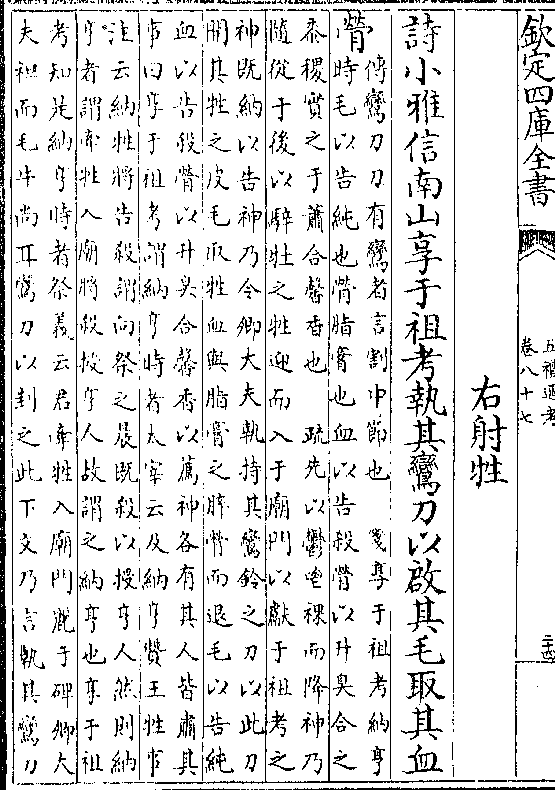 欽定四庫全書
五禮通考
卷八十七
二十四
右射牲
詩小雅信南山享于祖考執其鸞刀以啟其毛取其血
膋
傳鸞刀刀有鸞者言割中節也 箋享于祖考納亨
時毛以告純也膋脂膏也血以告殺膋以升臭合之
黍稷實之于蕭合馨香也 疏先以鬱鬯祼而降神乃
隨從于後以騂牡之牲迎而入于廟門以獻于祖考之
神既納以告神乃令卿大夫執持其鸞鈴之刀以此刀
開其牲之皮毛取牲血與脂膏之膟膋而退毛以告純
血以告殺膋以升臭合馨香以薦神各有其人皆肅其
事曰享于祖考謂納亨時者太宰云及納亨贊王牲事
注云納牲將告殺謂向祭之晨既殺以授亨人然則納
亨者謂牽牲入廟將殺授亨人故謂之納亨也享于祖
考知是納亨時者祭義云君牽牲入廟門麗于碑卿大
夫袒而毛牛尚耳鸞刀以刲之此下文乃言執其鸞刀